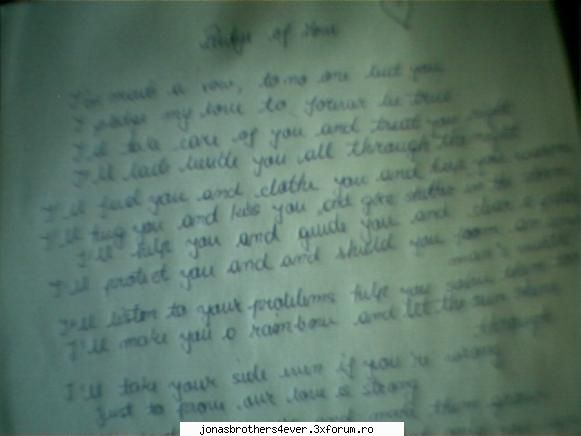 Pledge of Love
I've made a vow, to no one but you
I pledge my love to forever be true
I'll take care of you and treat you right
I'll lay beside you all through the night
I'll feed you and clothe you and keep you warm
I'll hug you and kiss you and give shelter in the storm
I'll help you and guide you and clear a
I'll protect you and and shield you from
I'll listen to your problems help you solve them
I'll make you a rainbow and let the sun shine
through
I'll take your side even if you're wrong
Just to prove our love is strong
jonasbrothers4ever.3xforum.ro